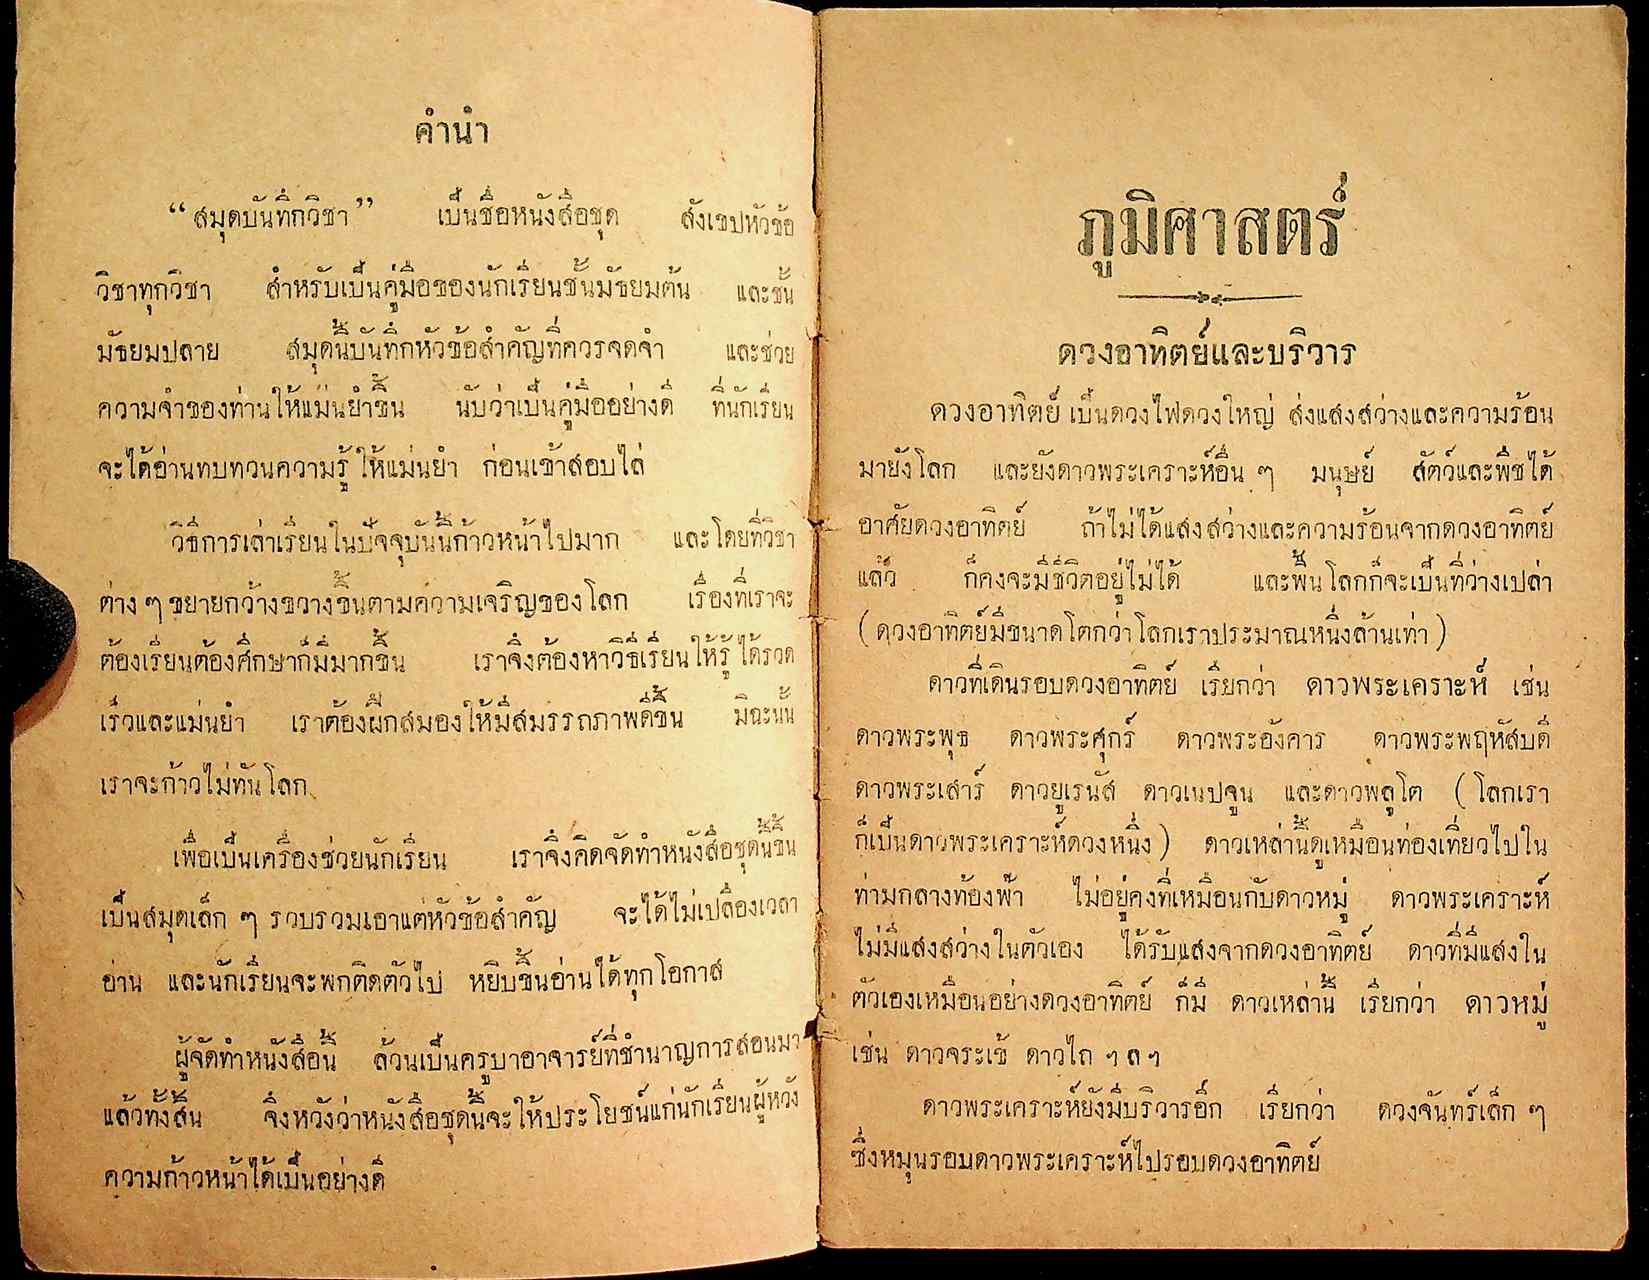 คำนำ
“สมุดบันทึกวิชา” เป็นชื่อหนังสือชุด สังเขปหัวข้อ
วิชาทุกวิชา สำหรับเป็นคู่มือของนักเรียนชั้นมัธยมต้น และชั้น
มัธยมปลาย สมุดนี้บันทึกหัวข้อสำคัญที่ควรจดจำ และช่วย
ความจำของท่านให้แม่นยำขึ้น นับว่าเป็นคู่มืออย่างดี ที่นักเรียน
จะได้อ่านทบทวนความรู้ ให้แม่นยำ ก่อนเข้าสอบไล่
วิธีการเล่าเรียนในปัจจุบันนี้ก้าวหน้าไปมาก และโดยที่วิชา
ต่าง ๆ ขยายกว้างขวางขึ้นตามความเจริญของโลก เรื่องที่เราจะ
ต้องเรียนต้องศึกษาก็มีมากขึ้น เราจึงต้องหาวิธีเรียนให้รู้ ได้รวด
เร็วและแม่นยำ เราต้องฝึกสมองให้มีสมรรถภาพดีขึ้น มิฉะนั้น
เราจะก้าวไม่ทันโลก
เพื่อเป็นเครื่องช่วยนักเรียน เราจึงคิดจัดทำหนังสือชุดนี้ขึ้น
เป็นสมุดเล็ก ๆ รวบรวมเอาแต่หัวข้อสำคัญ จะได้ไม่เปลืองเวลา
อ่าน และนักเรียนจะพกติดตัวไป หยิบขึ้นอ่านได้ทุกโอกาส
ผู้จัดทำหนังสือนี้ ล้วนเป็นครูบาอาจารย์ที่ชำนาญการสอนมา
แล้วทั้งสิ้น จึงหวังว่าหนังสือชุดนี้จะให้ประโยชน์แก่นักเรียนผู้หวัง
ความก้าวหน้าได้เป็นอย่างดี
ภูมิศาสตร์
ดวงอาทิตย์และบริวาร
ดวงอาทิตย์ เป็นดวงไฟดวงใหญ่ ส่งแสงสว่างและความร้อน
มายังโลก และยังดาวพระเคราะห์อื่น ๆ มนุษย์ สัตว์และพืชได้
อาศัยดวงอาทิตย์ ถ้าไม่ได้แสงสว่างและความร้อนจากดวงอาทิตย์
แล้ว ก็คงจะมีชีวิตอยู่ไม่ได้ และพื้นโลกก็จะเป็นที่ว่างเปล่า
(ดวงอาทิตย์มีขนาดโตกว่าโลกเราประมาณหนึ่งล้านเท่า)
ดาวที่เดินรอบดวงอาทิตย์ เรียกว่า ดาวพระเคราะห์ เช่น
ดาวพระพุธ ดาวพระศุกร์ ดาวพระอังคาร ดาวพระพฤหัสบดี
ดาวพระเสาร์ ดาวยูเรนัส ดาวเนปจูน และดาวพลูโต (โลกเรา
ก็เป็นดาวพระเคราะห์ดวงหนึ่ง) ดาวเหล่านี้ดูเหมือนท่องเที่ยวไปใน
ท่ามกลางท้องฟ้า ไม่อยู่คงที่เหมือนกับดาวหมู่ ดาวพระเคราะห์
ไม่มีแสงสว่างในตัวเอง ได้รับแสงจากดวงอาทิตย์ ดาวที่มีแสงใน
ตัวเองเหมือนอย่างดวงอาทิตย์ ก็มี ดาวเหล่านี้ เรียกว่า ดาวหมู่
เช่น ดาวจระเข้ ดาวไถ ฯลฯ
ดาวพระเคราะห์ยังมีบริวารอีก เรียกว่า ดวงจันทร์เล็ก ๆ
ซึ่งหมุนรอบดาวพระเคราะห์ไปรอบดวงอาทิตย์